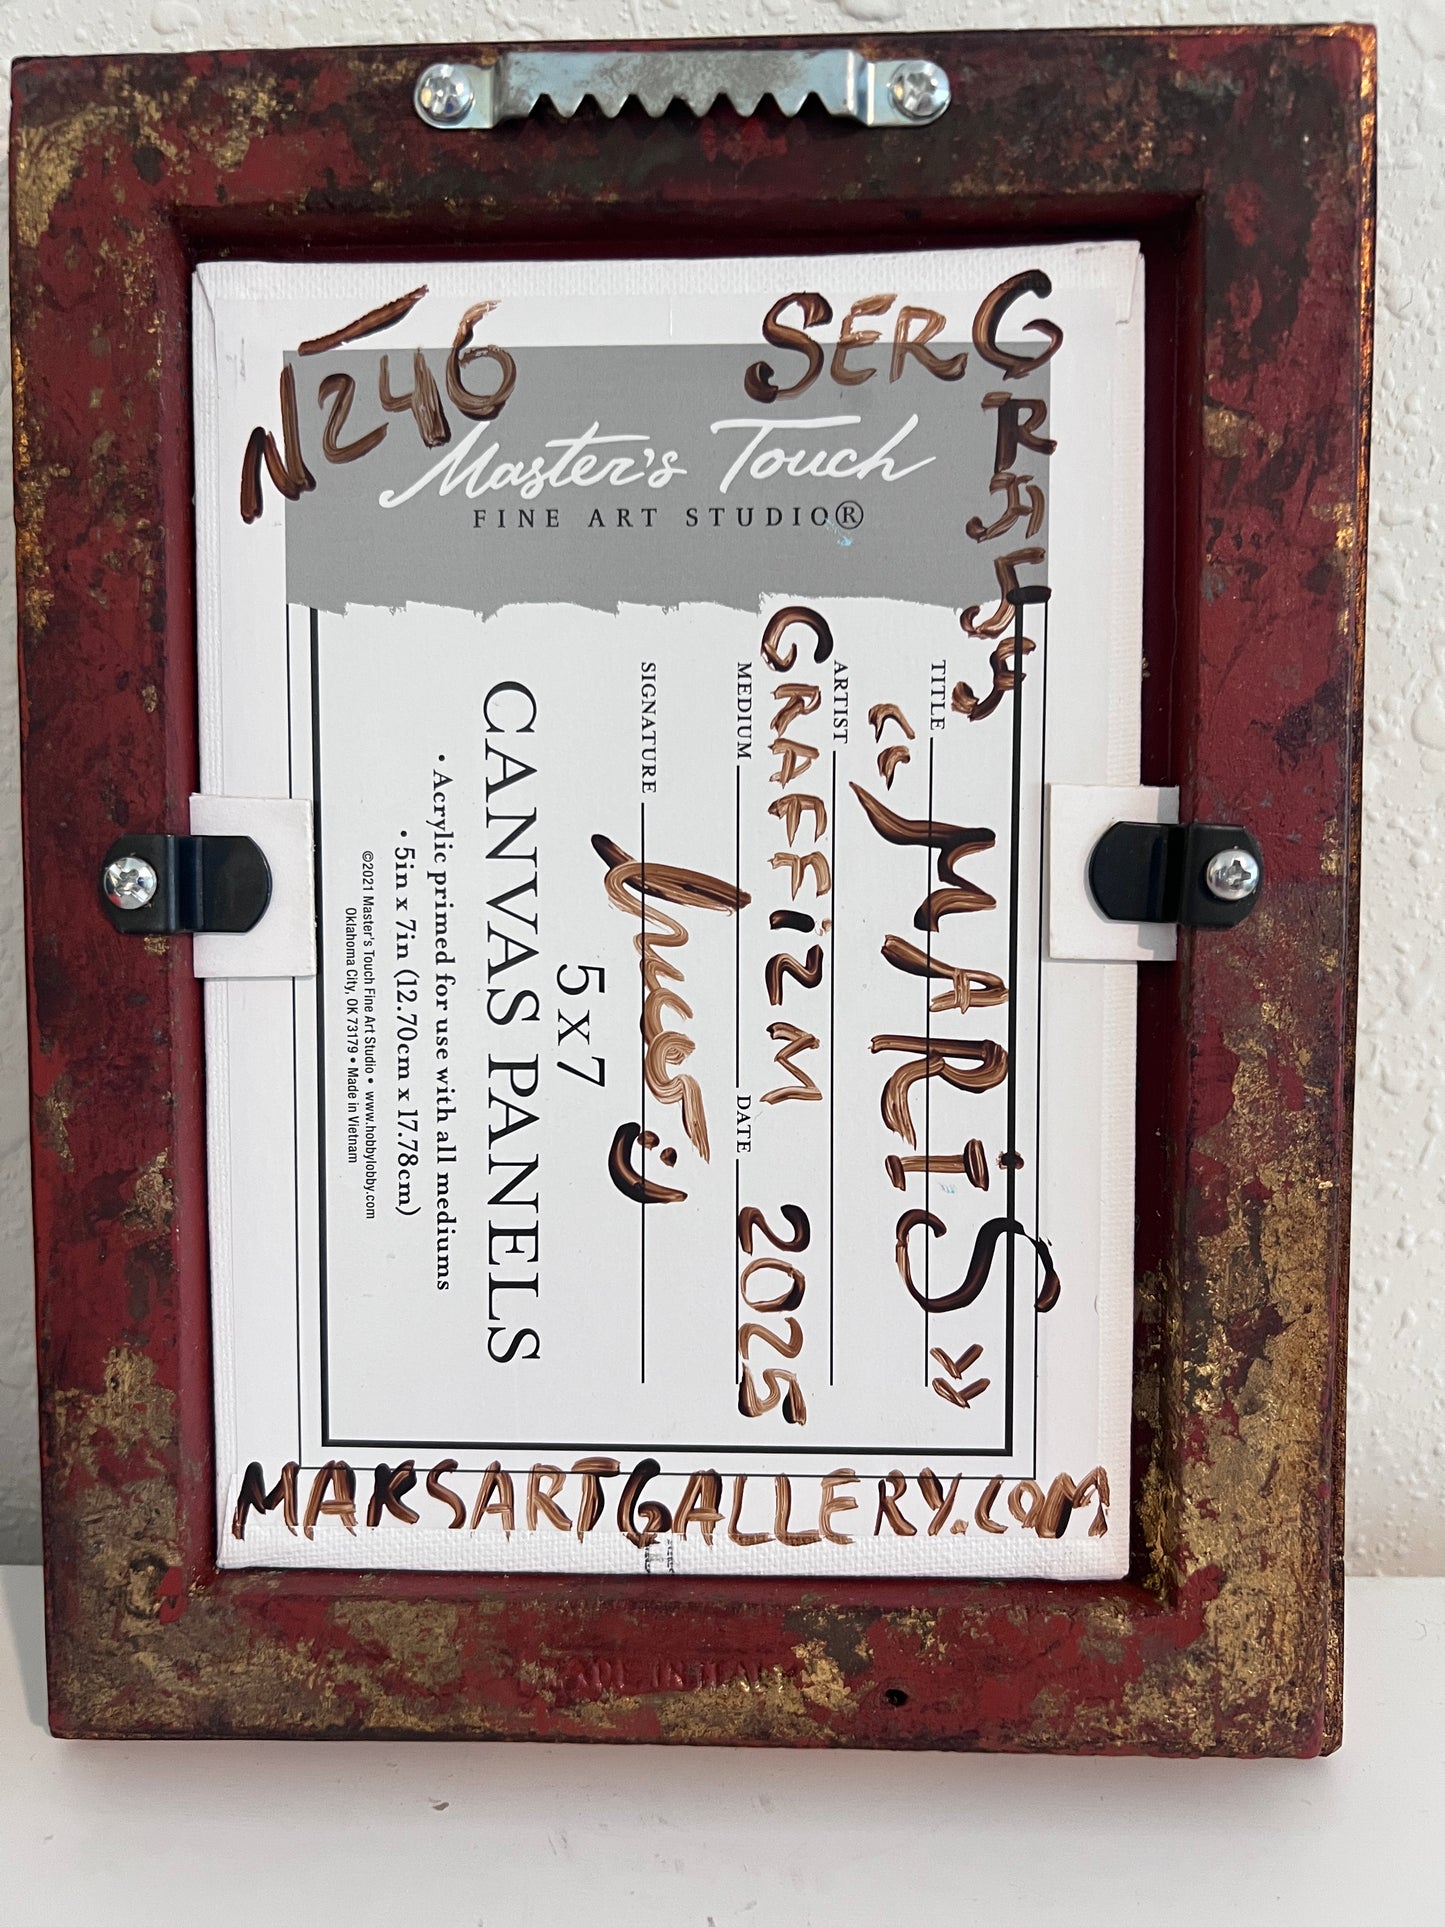 N246
SERG
GRAFFIZM
"MARIS"
2025
Master's Touch
FINE ART STUDIO®
TITLE
ARTIST
MEDIUM
DATE
SIGNATURE
5 x 7
CANVAS PANELS
• Acrylic primed for use with all mediums
• 5in x 7in (12.70cm x 17.78cm)
©2021 Master's Touch Fine Art Studio • www.hobbylobby.com
Oklahoma City, OK 73179 • Made in Vietnam
MAKSARTGALLERY.COM